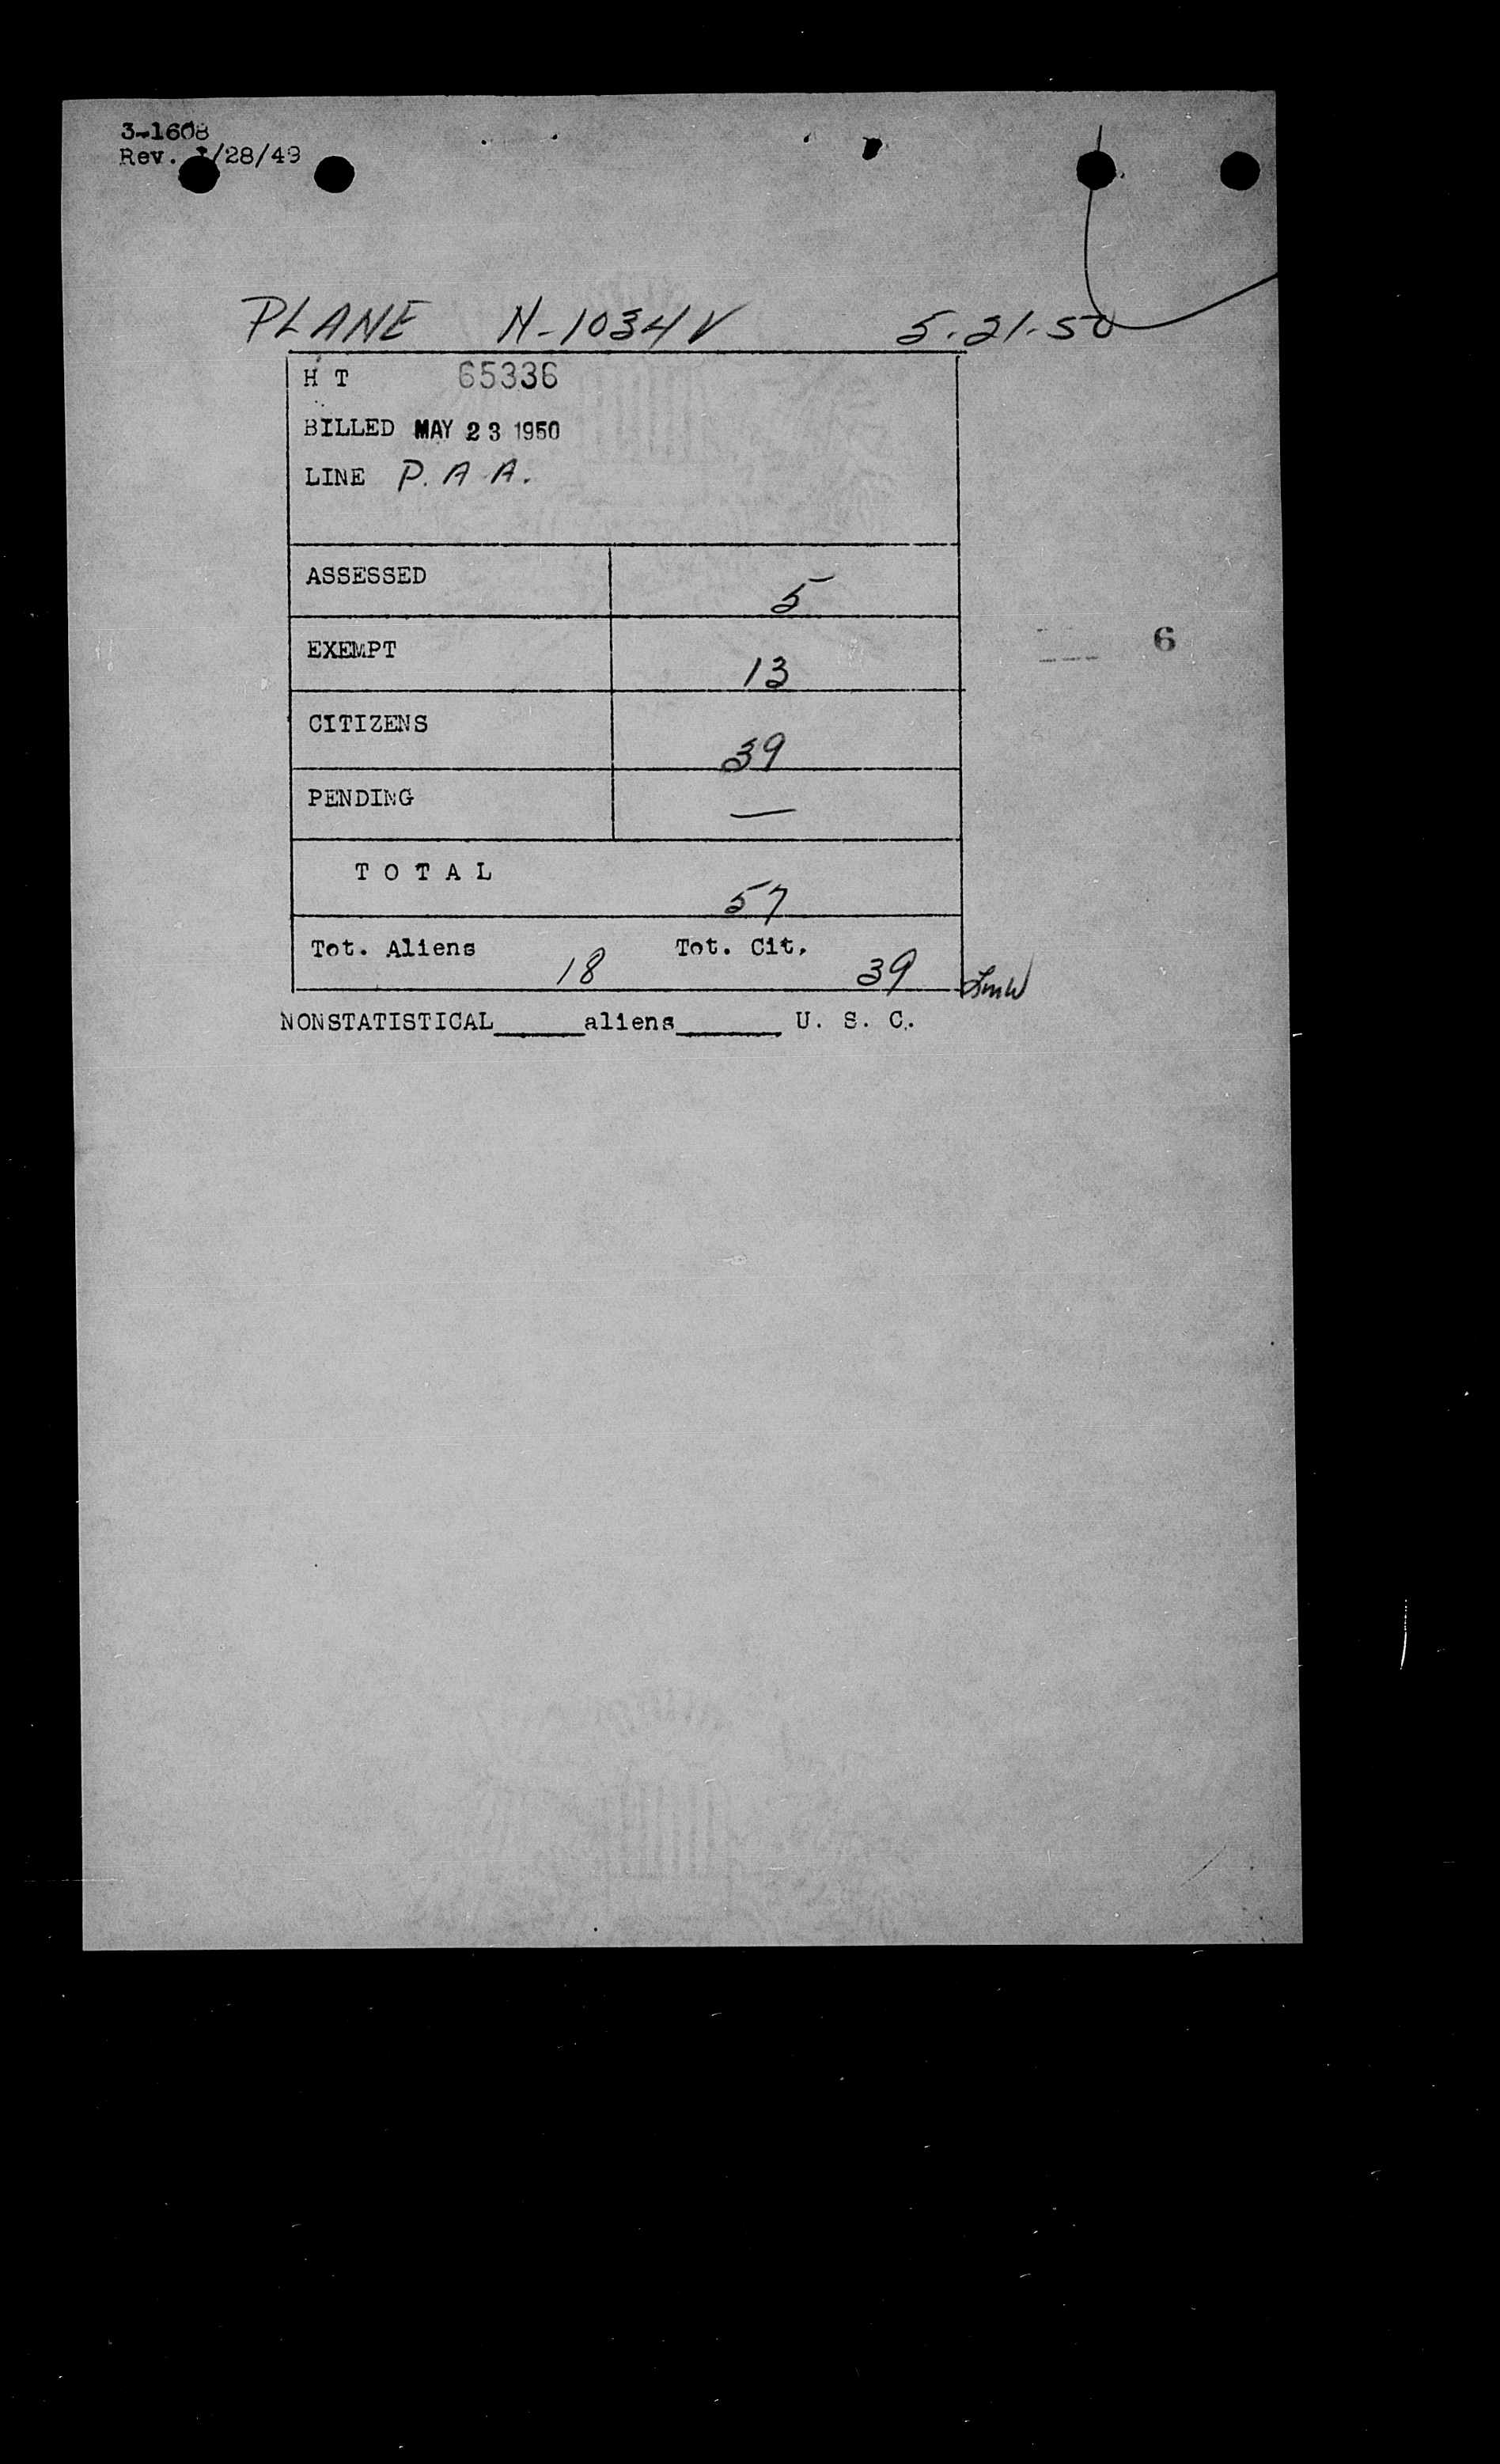 3-1608
Rev. /28/49
PLANE N-1034V 5-21-50
H T 65336
BILLED MAY 23 1950
LINE P. A A.
ASSESSED 5
EXEMPT 13
6
CITIZENS 39
PENDING —
T O T A L 57
Tot. Aliens 18 Tot. Cit. 39
NONSTATISTICAL______aliens_______ U. S. C.